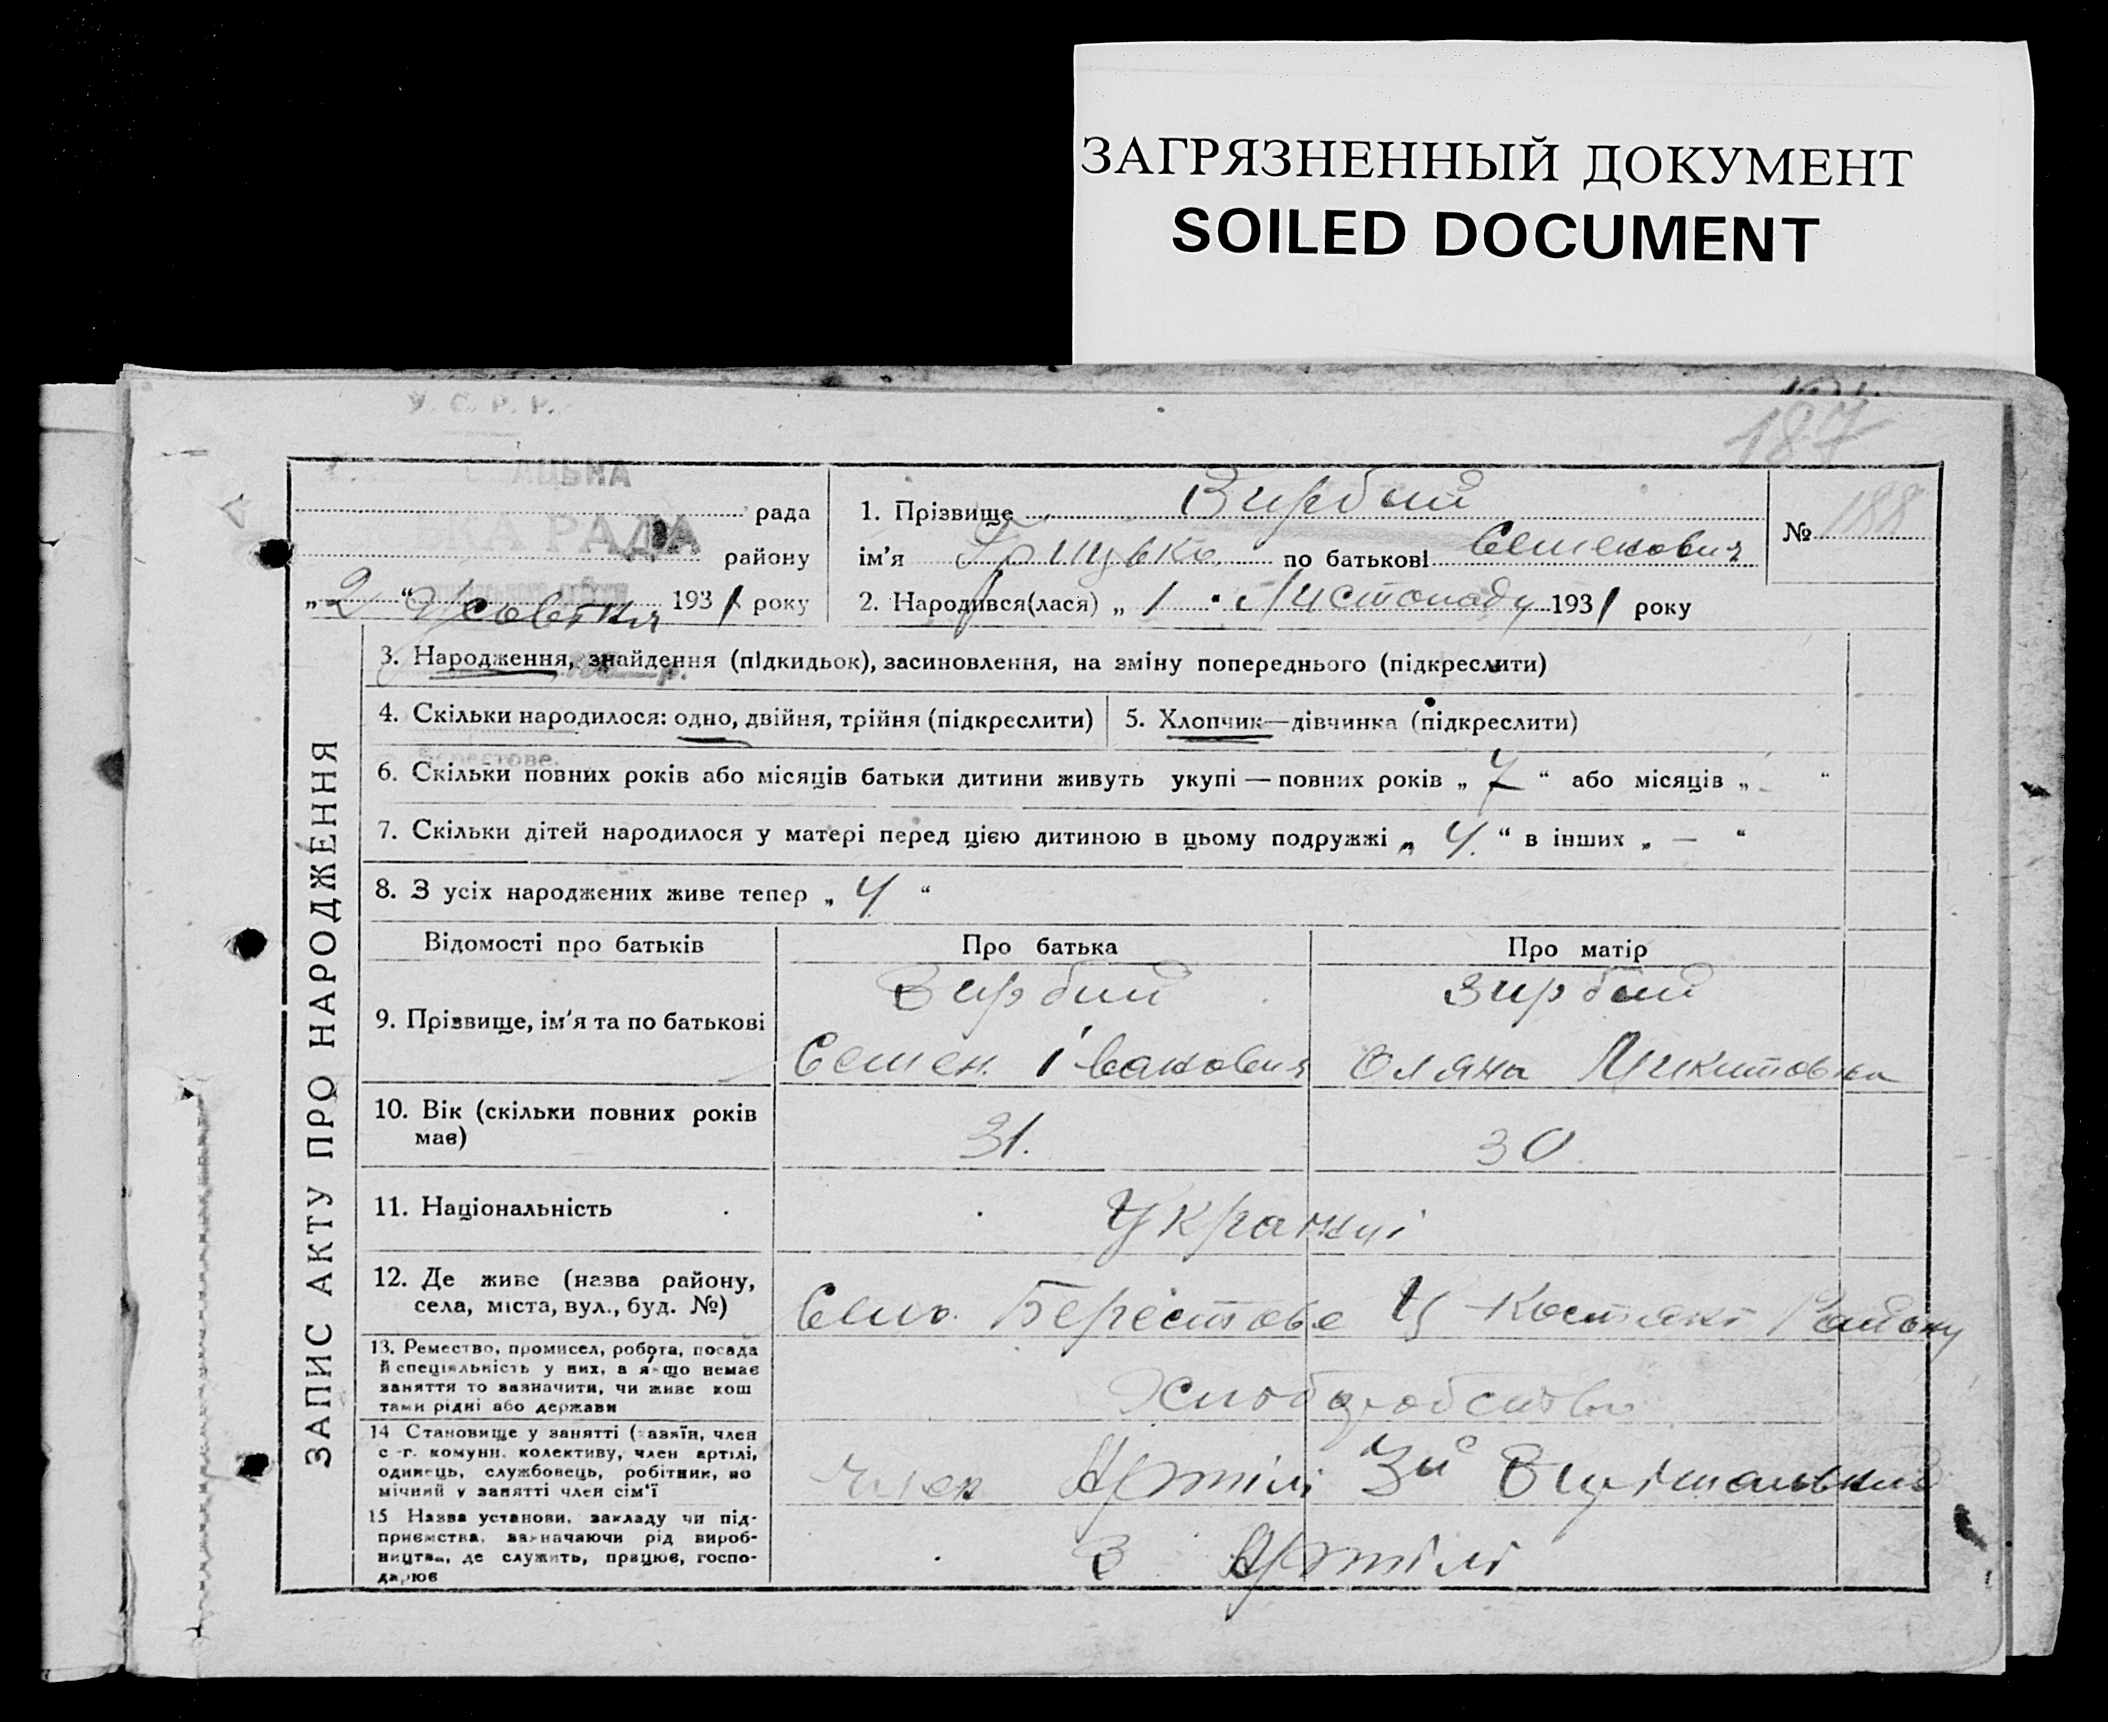 ЗАГРЯЗНЕННЫЙ ДОКУМЕНТ
SOILED DOCUMENT
187
У. С. Р. Р.
КА РАДА
рада
району
„2“ 1931 року
1. Прізвище Зирбий
ім'я по батькові Семенович
№ 188
2. Народився(лася) „1 Листопаду 1931 року
ЗАПИС АКТУ ПРО НАРОДЖЕННЯ
3. Народження, знайдення (підкидьок), засиновлення, на зміну попереднього (підкреслити)
4. Скільки народилося: одно, двійня, трійня (підкреслити)
5. Хлопчик—дівчинка (підкреслити)
6. Скільки повних років або місяців батьки дитини живуть укупі — повних років „7“ або місяців „-“
7. Скільки дітей народилося у матері перед цією дитиною в цьому подружжі „4.“ в інших „—“
8. З усіх народжених живе тепер „4.“
Відомості про батьків
Про батька
Про матір
9. Прізвище, ім'я та по батькові
Зирбий
Семен Іванович
Зирбий
Оляна Микитовна
10. Вік (скільки повних років
має)
31.
30.
11. Національність
12. Де живе (назва району,
села, міста, вул., буд. №)
Село Берестове Району
13. Ремество, промисел, робота, посада
й спеціяльність у них, а якщо немає
заняття то зазначити, чи живе кош
тами рідні або держави
14 Становище у занятті (хазяїн, член
с-г. комуни, колективу, член артілі,
одинець, службовець, робітник, по
мічний у занятті член сім'ї
член Артілі
15 Назва установи, закладу чи під-
приємства, зазначаючи рід вироб-
ництва, де служить, працює, госпо-
дарює
В Артілі